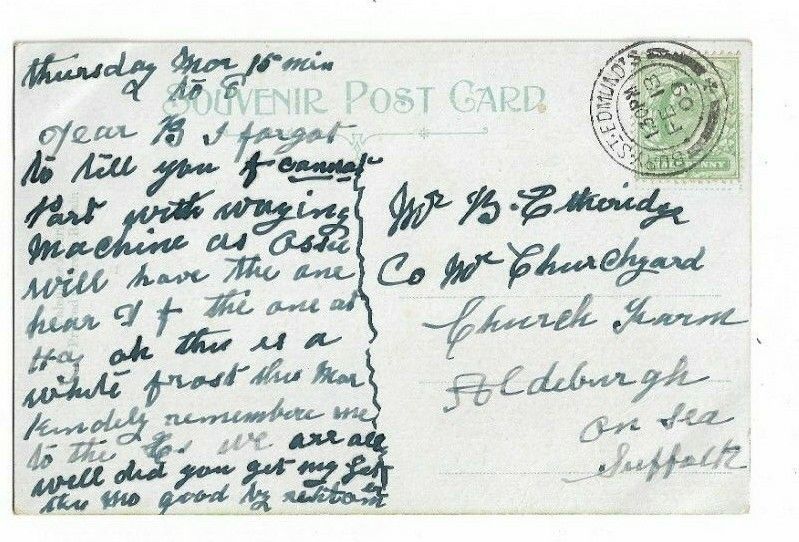 Thursday Mor 15 min
to 6
SOUVENIR POST CARD
Dear B I forgot
to tell you I cannot
Part with waying
Machine as Ossie
will have the one
hear & I the one at
Ha, oh this is a
white frost this Mor
kindely remembere me
to the we are all
well did you get my Let
this Mo good by
BURY ST. EDMUND'S
1.30 PM
FE 13
09
Mr B. Etheridge
Co Mr Churchyard
Church Farm
Aldeburgh
on sea
Suffolk